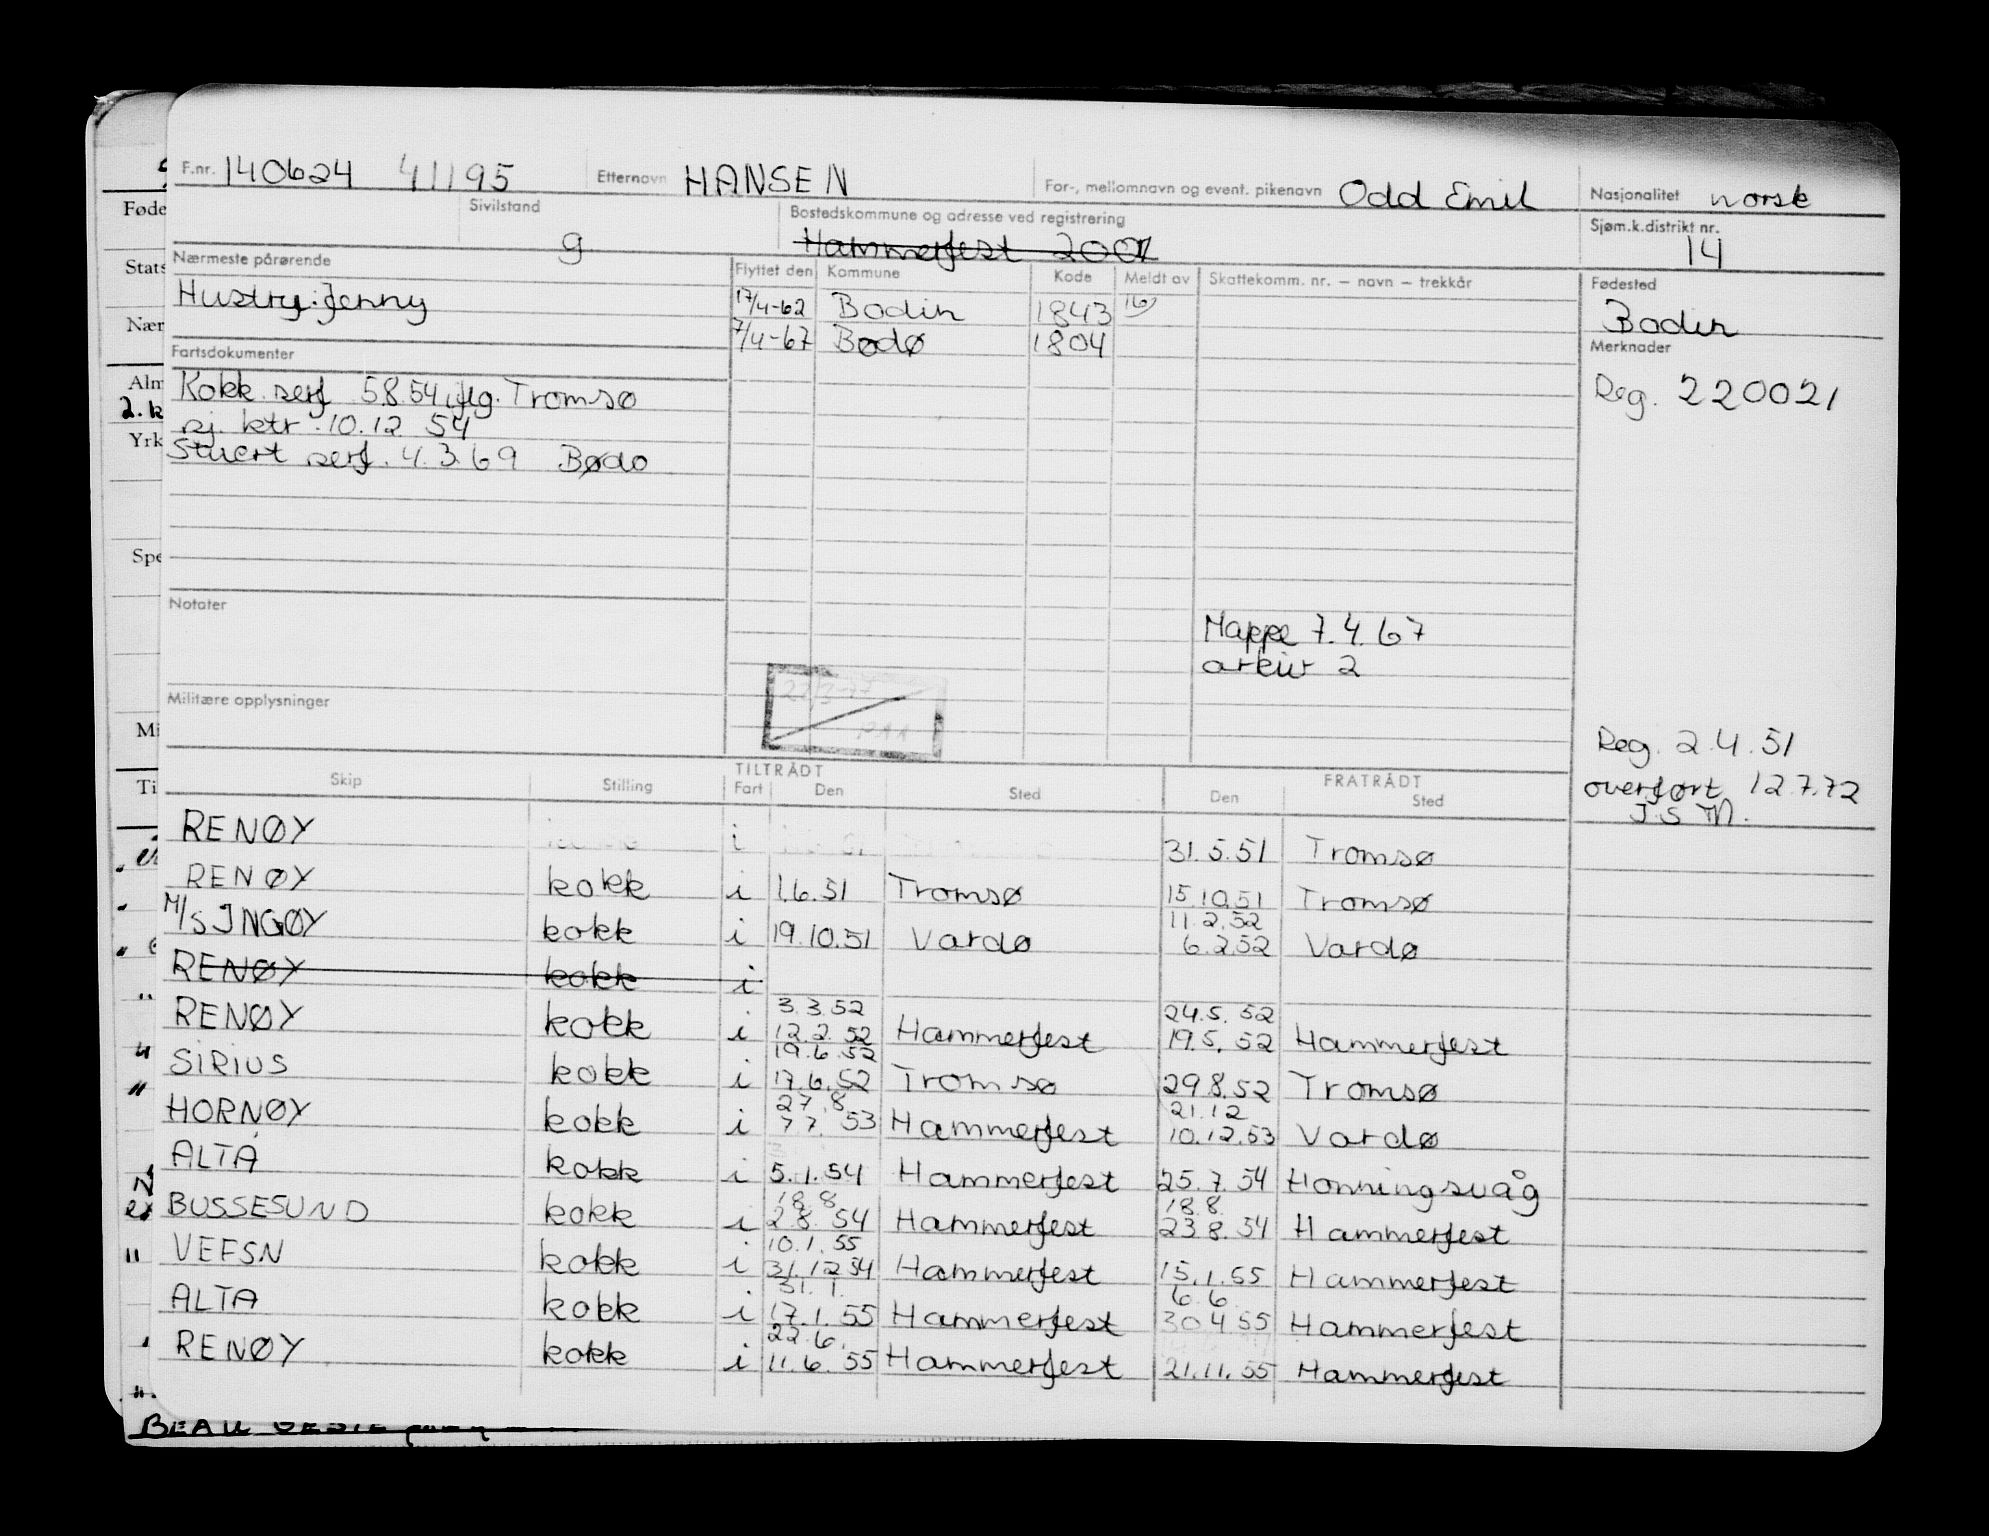 F.nr. 140624 41195 Etternavn HANSEN For-, mellomnavn og event. pikenavn Odd Emil Nasjonalitet norsk
Sivilstand g Bostedskommune og adresse ved registrering Hammerfest Sjøm.k.distrikt nr. 14
Nærmeste pårørende Flyttet den Kommune Kode Meldt av Skattekomm. nr. – navn – trekkår Fødested
Hustru: Jenny 17/4-62 Bodin 1843 16) Bodin
7/4-67 Bodø 1804
Fartsdokumenter Merknader
Kokk serf 5.8.54, flg. Tromsø Reg. 220021
sj. ktr. 10.12 54
Stuert serf. 4.3.69 Bodø
Notater
Mappe 7.4.67
arkiv 2
Militære opplysninger
Reg. 2.4.51
overført 12.7.72
J.S M.
TILTRÅDT FRATRÅDT
Skip Stilling Fart Den Sted Den Sted
RENØY i 31.5.51 Tromsø
RENØY kokk i 1.6.51 Tromsø 15.10.51 Tromsø
11.2.52
M/S INGØY kokk i 19.10.51 Vardø 6.2.52 Vardø
RENØY kokk i
3.3.52 24.5.52
RENØY kokk i 12.2.52 Hammerfest 19.5.52 Hammerfest
19.6.52
SIRIUS kokk i 17.6.52 Tromsø 29.8.52 Tromsø
27.8 21.12
HORNØY kokk i 7.7. 53 Hammerfest 10.12.53 Vardø
ALTA kokk i 5.1.54 Hammerfest 25.7.54 Honningsvåg
18.8 18.8.
BUSSESUND kokk i 2.8.54 Hammerfest 23.8.54 Hammerfest
10.1.55
VEFSN kokk i 31.12 54 Hammerfest 15.1.55 Hammerfest
31.1. 6.6.
ALTA kokk i 17.1.55 Hammerfest 30.4.55 Hammerfest
22.6.
RENØY kokk i 11.6.55 Hammerfest 21.11.55 Hammerfest
BEAU